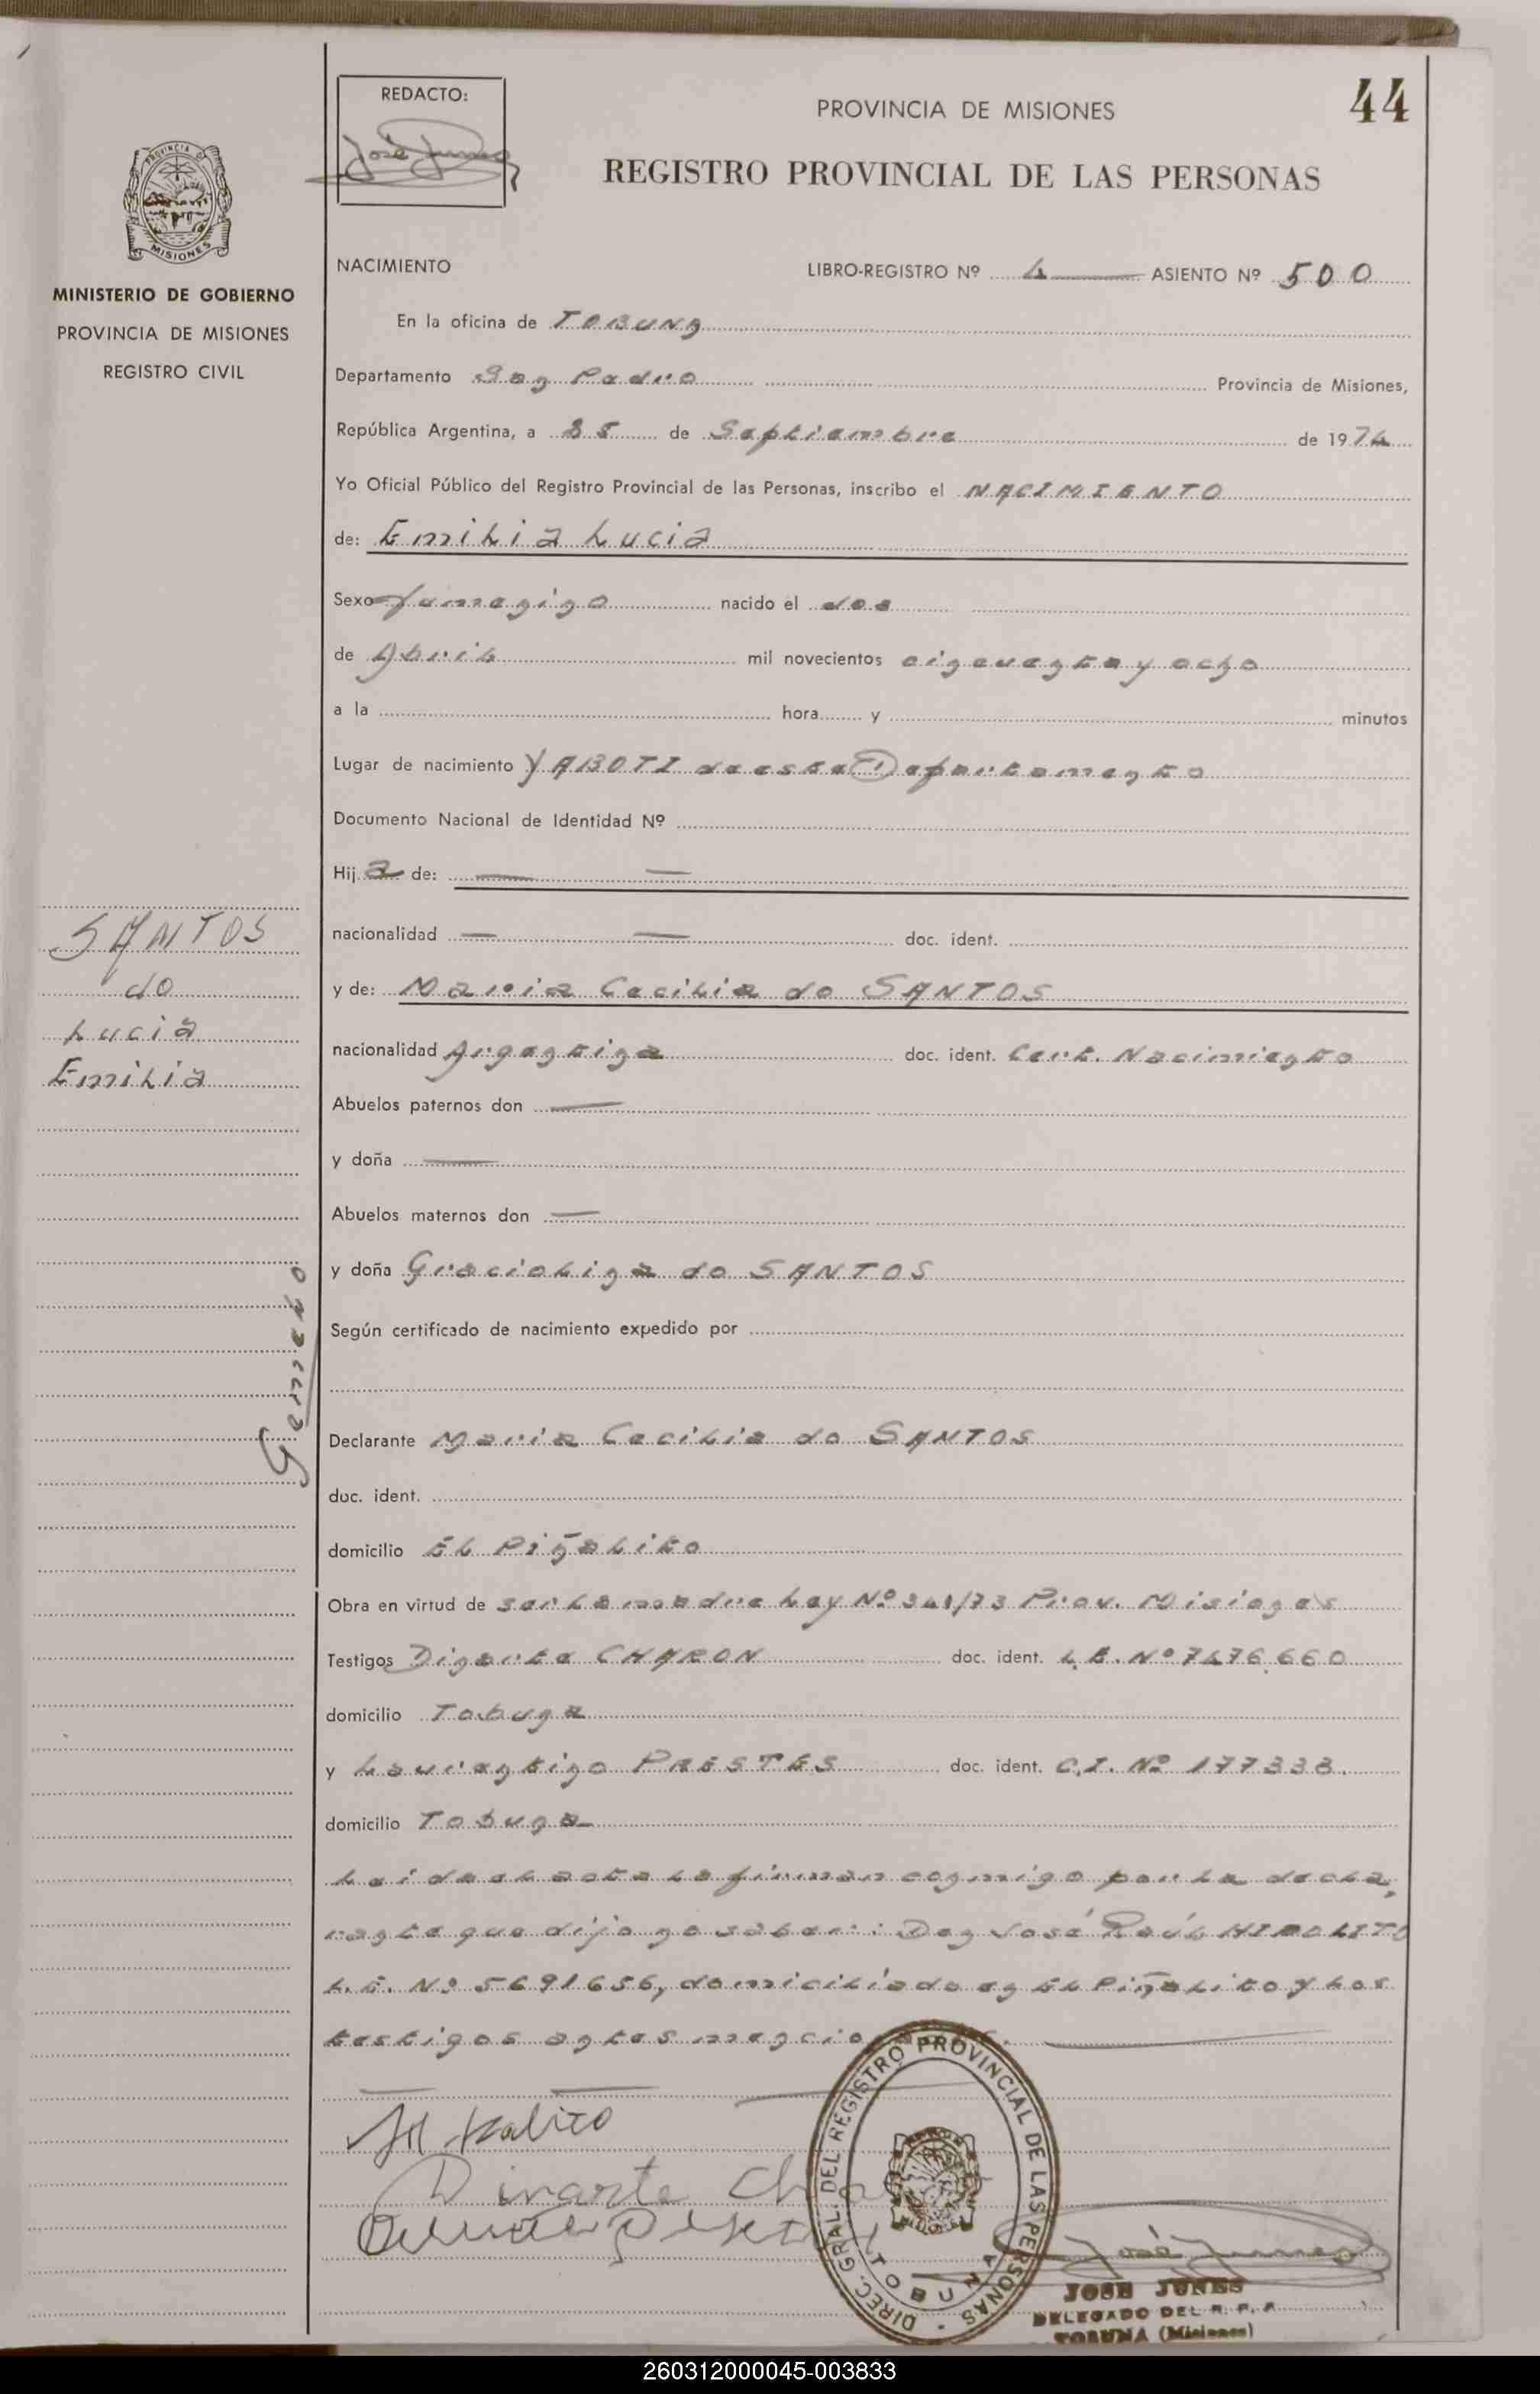 44
REDACTO:
José Junes
PROVINCIA DE MISIONES
REGISTRO PROVINCIAL DE LAS PERSONAS
PROVINCIA DE
MISIONES
MINISTERIO DE GOBIERNO
PROVINCIA DE MISIONES
REGISTRO CIVIL
NACIMIENTO LIBRO-REGISTRO Nº 4 ASIENTO Nº 500
En la oficina de TOBUNA
Departamento San Pedro Provincia de Misiones,
República Argentina, a de Septiembre de 1974
Yo Oficial Público del Registro Provincial de las Personas, inscribo el NACIMIENTO
de: Emilia Lucia
Sexo femenino nacido el dos
de Abril mil novecientos cincuenta y ocho
a la hora y minutos
Lugar de nacimiento YABOTI de este Departamento
Documento Nacional de Identidad Nº
Hija de: — —
nacionalidad — — doc. ident.
y de: Maria Cecilia do SANTOS
nacionalidad Argentina doc. ident. Cert. Nacimiento
Abuelos paternos don —
y doña —
Abuelos maternos don —
y doña Graciolina do SANTOS
Según certificado de nacimiento expedido por
Declarante Maria Cecilia do SANTOS
doc. ident.
domicilio El Piñalito
Obra en virtud de ser la madre Ley Nº 341/73 Prov. Misiones
Testigos Dinarte CHARON doc. ident. L.E. Nº 7476.660
domicilio Tobuna
y Laurentino PRESTES doc. ident. C.I. Nº 177338.
domicilio Tobuna
Leida el acta la firman conmigo por la decla,
rante que dijo no saber: Don José Raúl HIPOLITO
L.E. Nº 5691656, domiciliado en El Piñalito y los
testigos antes mencio
Dinarte Cha
José Junes
DIREC. GRAL. DEL REGISTRO PROVINCIAL DE LAS PERSONAS
TOBUNA
JOSE JUNES
DELEGADO DEL R. P. P.
TOBUNA (Misiones)
SANTOS
do
Lucia
Emilia
Gemelo
260312000045-003833